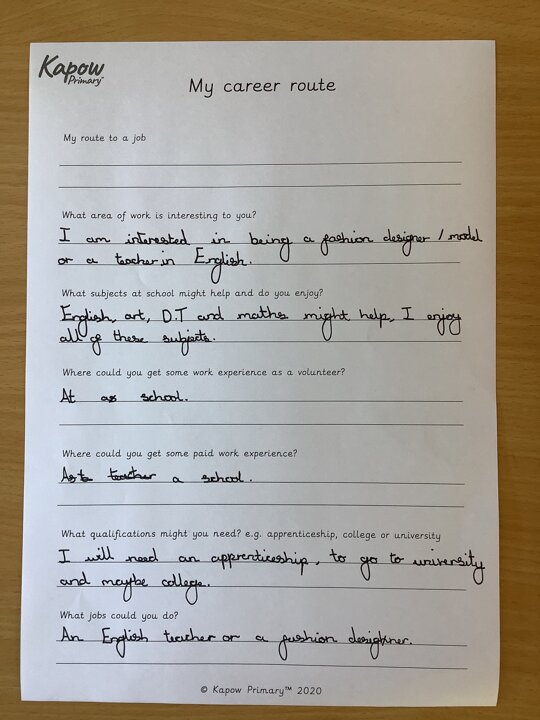 Kapow
Primary™
My career route
My route to a job
What area of work is interesting to you?
I am interested in being a fashion designer / model
or a teacher in English.
What subjects at school might help and do you enjoy?
English, art, D.T and maths might help, I enjoy
all of these subjects.
Where could you get some work experience as a volunteer?
At as school.
Where could you get some paid work experience?
a school.
What qualifications might you need? e.g. apprenticeship, college or university
I will need an apprenticeship, to go to university
and maybe college.
What jobs could you do?
An English teacher or a fashion designer.
© Kapow Primary™ 2020